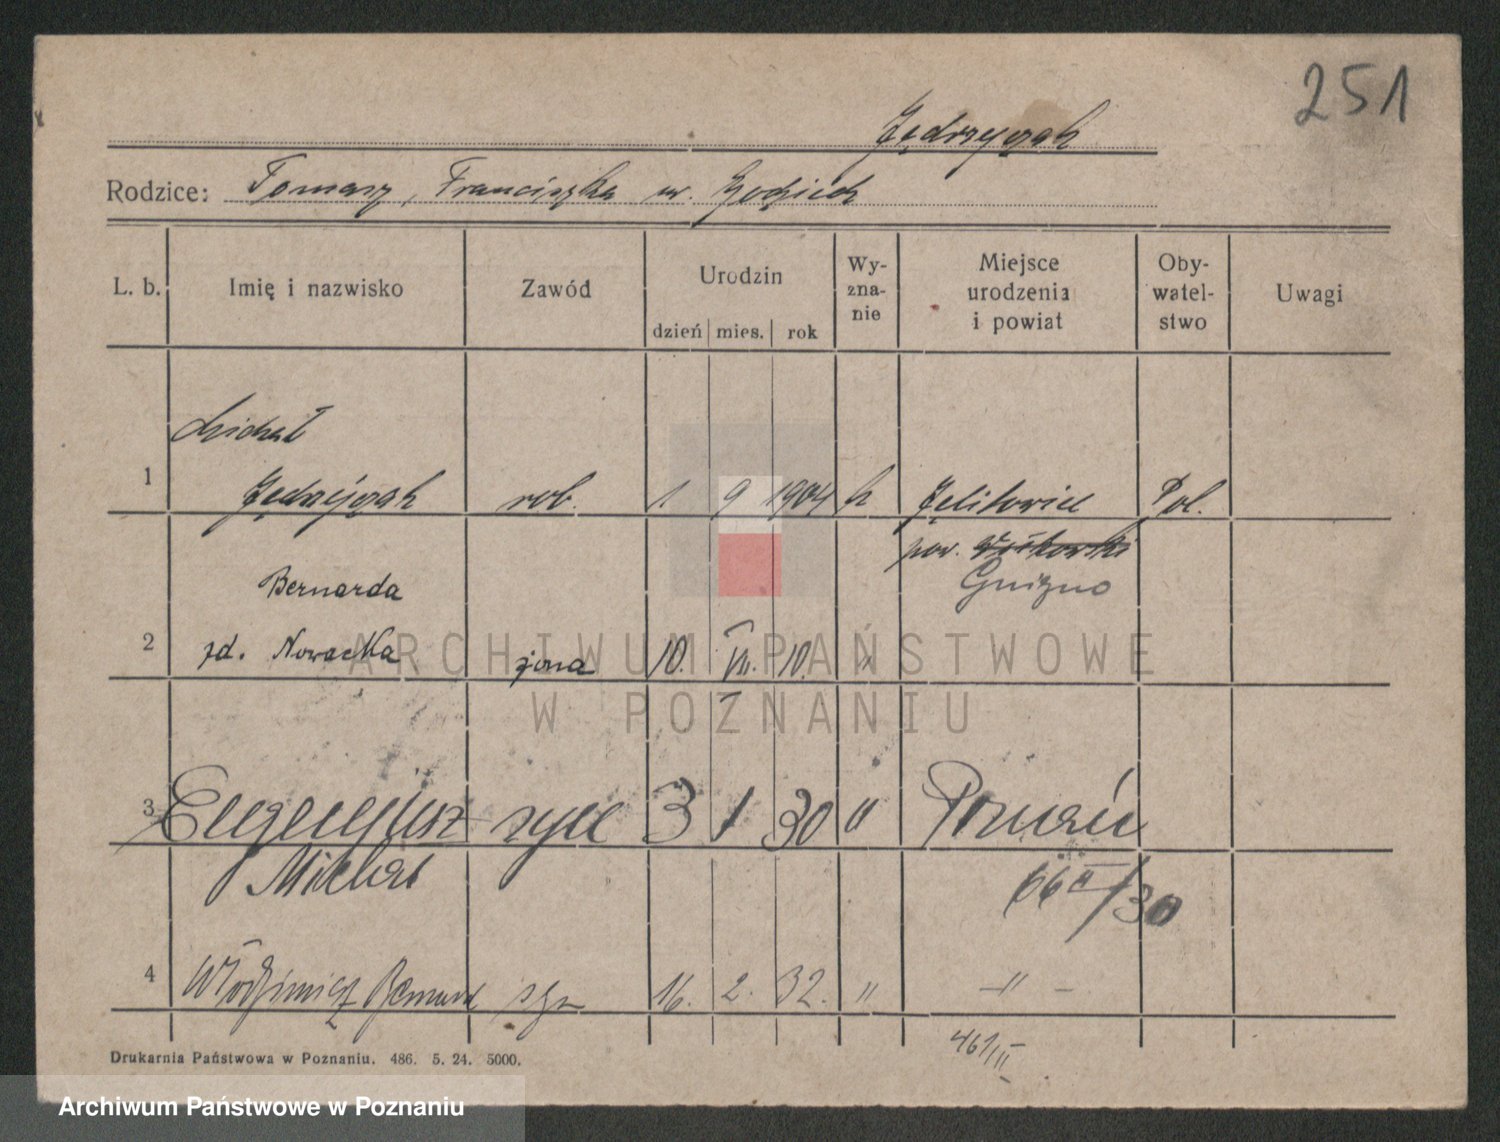 251
Jędrzyczak
Rodzice: Tomasz, Franciszka ur.
L. b. Imię i nazwisko Zawód Urodzin dzień mies. rok Wy-zna-nie Miejsce urodzenia i powiat Oby-watel-stwo Uwagi
Michał
1 Jędrzyczak rob. 1 9 1904 k Jelitowice Pol.
pow. Witkowski
Gnizno
Bernarda
2 zd. Nowacka żona 10. VII. 10. "
3 Eugeniusz syn 3 1 30 " Poznań
Michał
66 II/30
4 Włodzimierz Bernard syn 16. 2. 32. " - " -
461/II
Drukarnia Państwowa w Poznaniu. 486. 5. 24. 5000.
ARCHIWUM PAŃSTWOWE
W POZNANIU
Archiwum Państwowe w Poznaniu